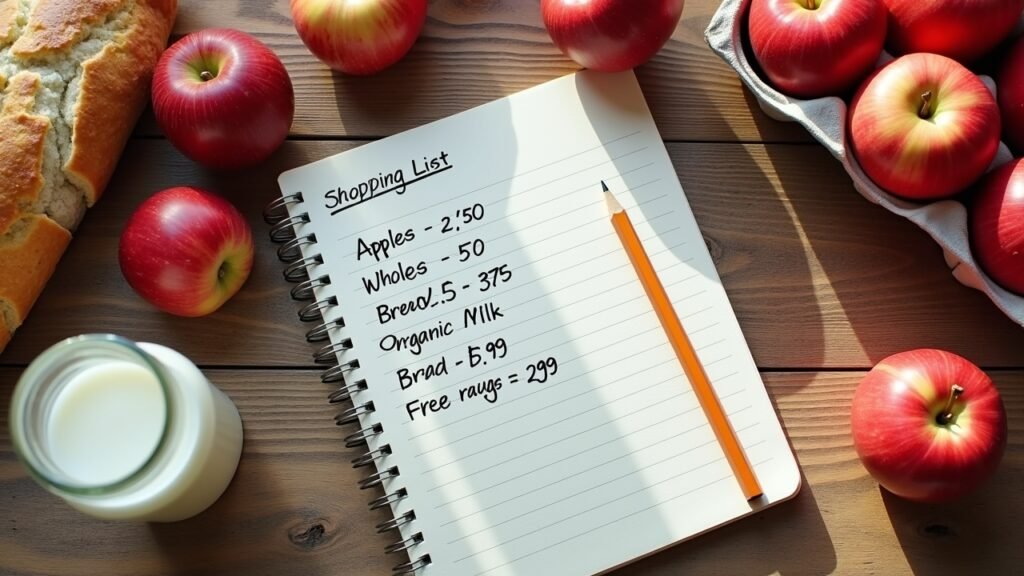 Shopping List
Apples - 2,'50
Wholes - 50
Bread.5 - 375
Organic Milk
Brad - 5.99
Free raugs = 299